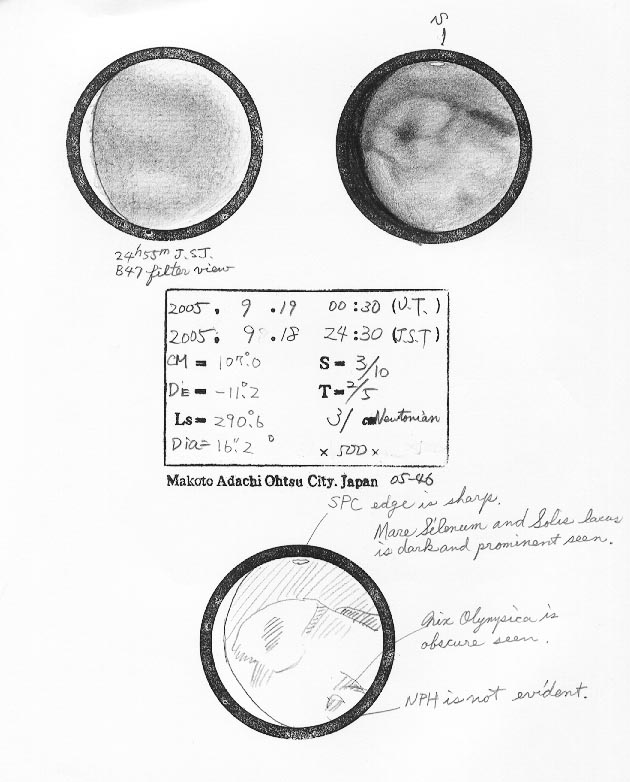 S
24h55m J.S.T.
B47 filter view
2005. 9 .19 00:30 (U.T.)
2005. 9 .18 24:30 (J.S.T)
CM = 107°.0 S = 3/10
DE = -11°.2 T = 2/5
Ls = 290°.6 31 cm Newtonian
Dia = 16".2 × 500 ×
Makoto Adachi Ohtsu City. Japan 05-46
SPC edge is sharp.
Mare Silenum and Solis lacus
is dark and prominent seen.
Nix Olympica is
obscure seen.
NPH is not evident.